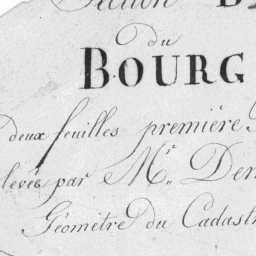 Section B
du
BOURG
deux feuilles première
levée par Mr. Dem
Géomètre du Cadast